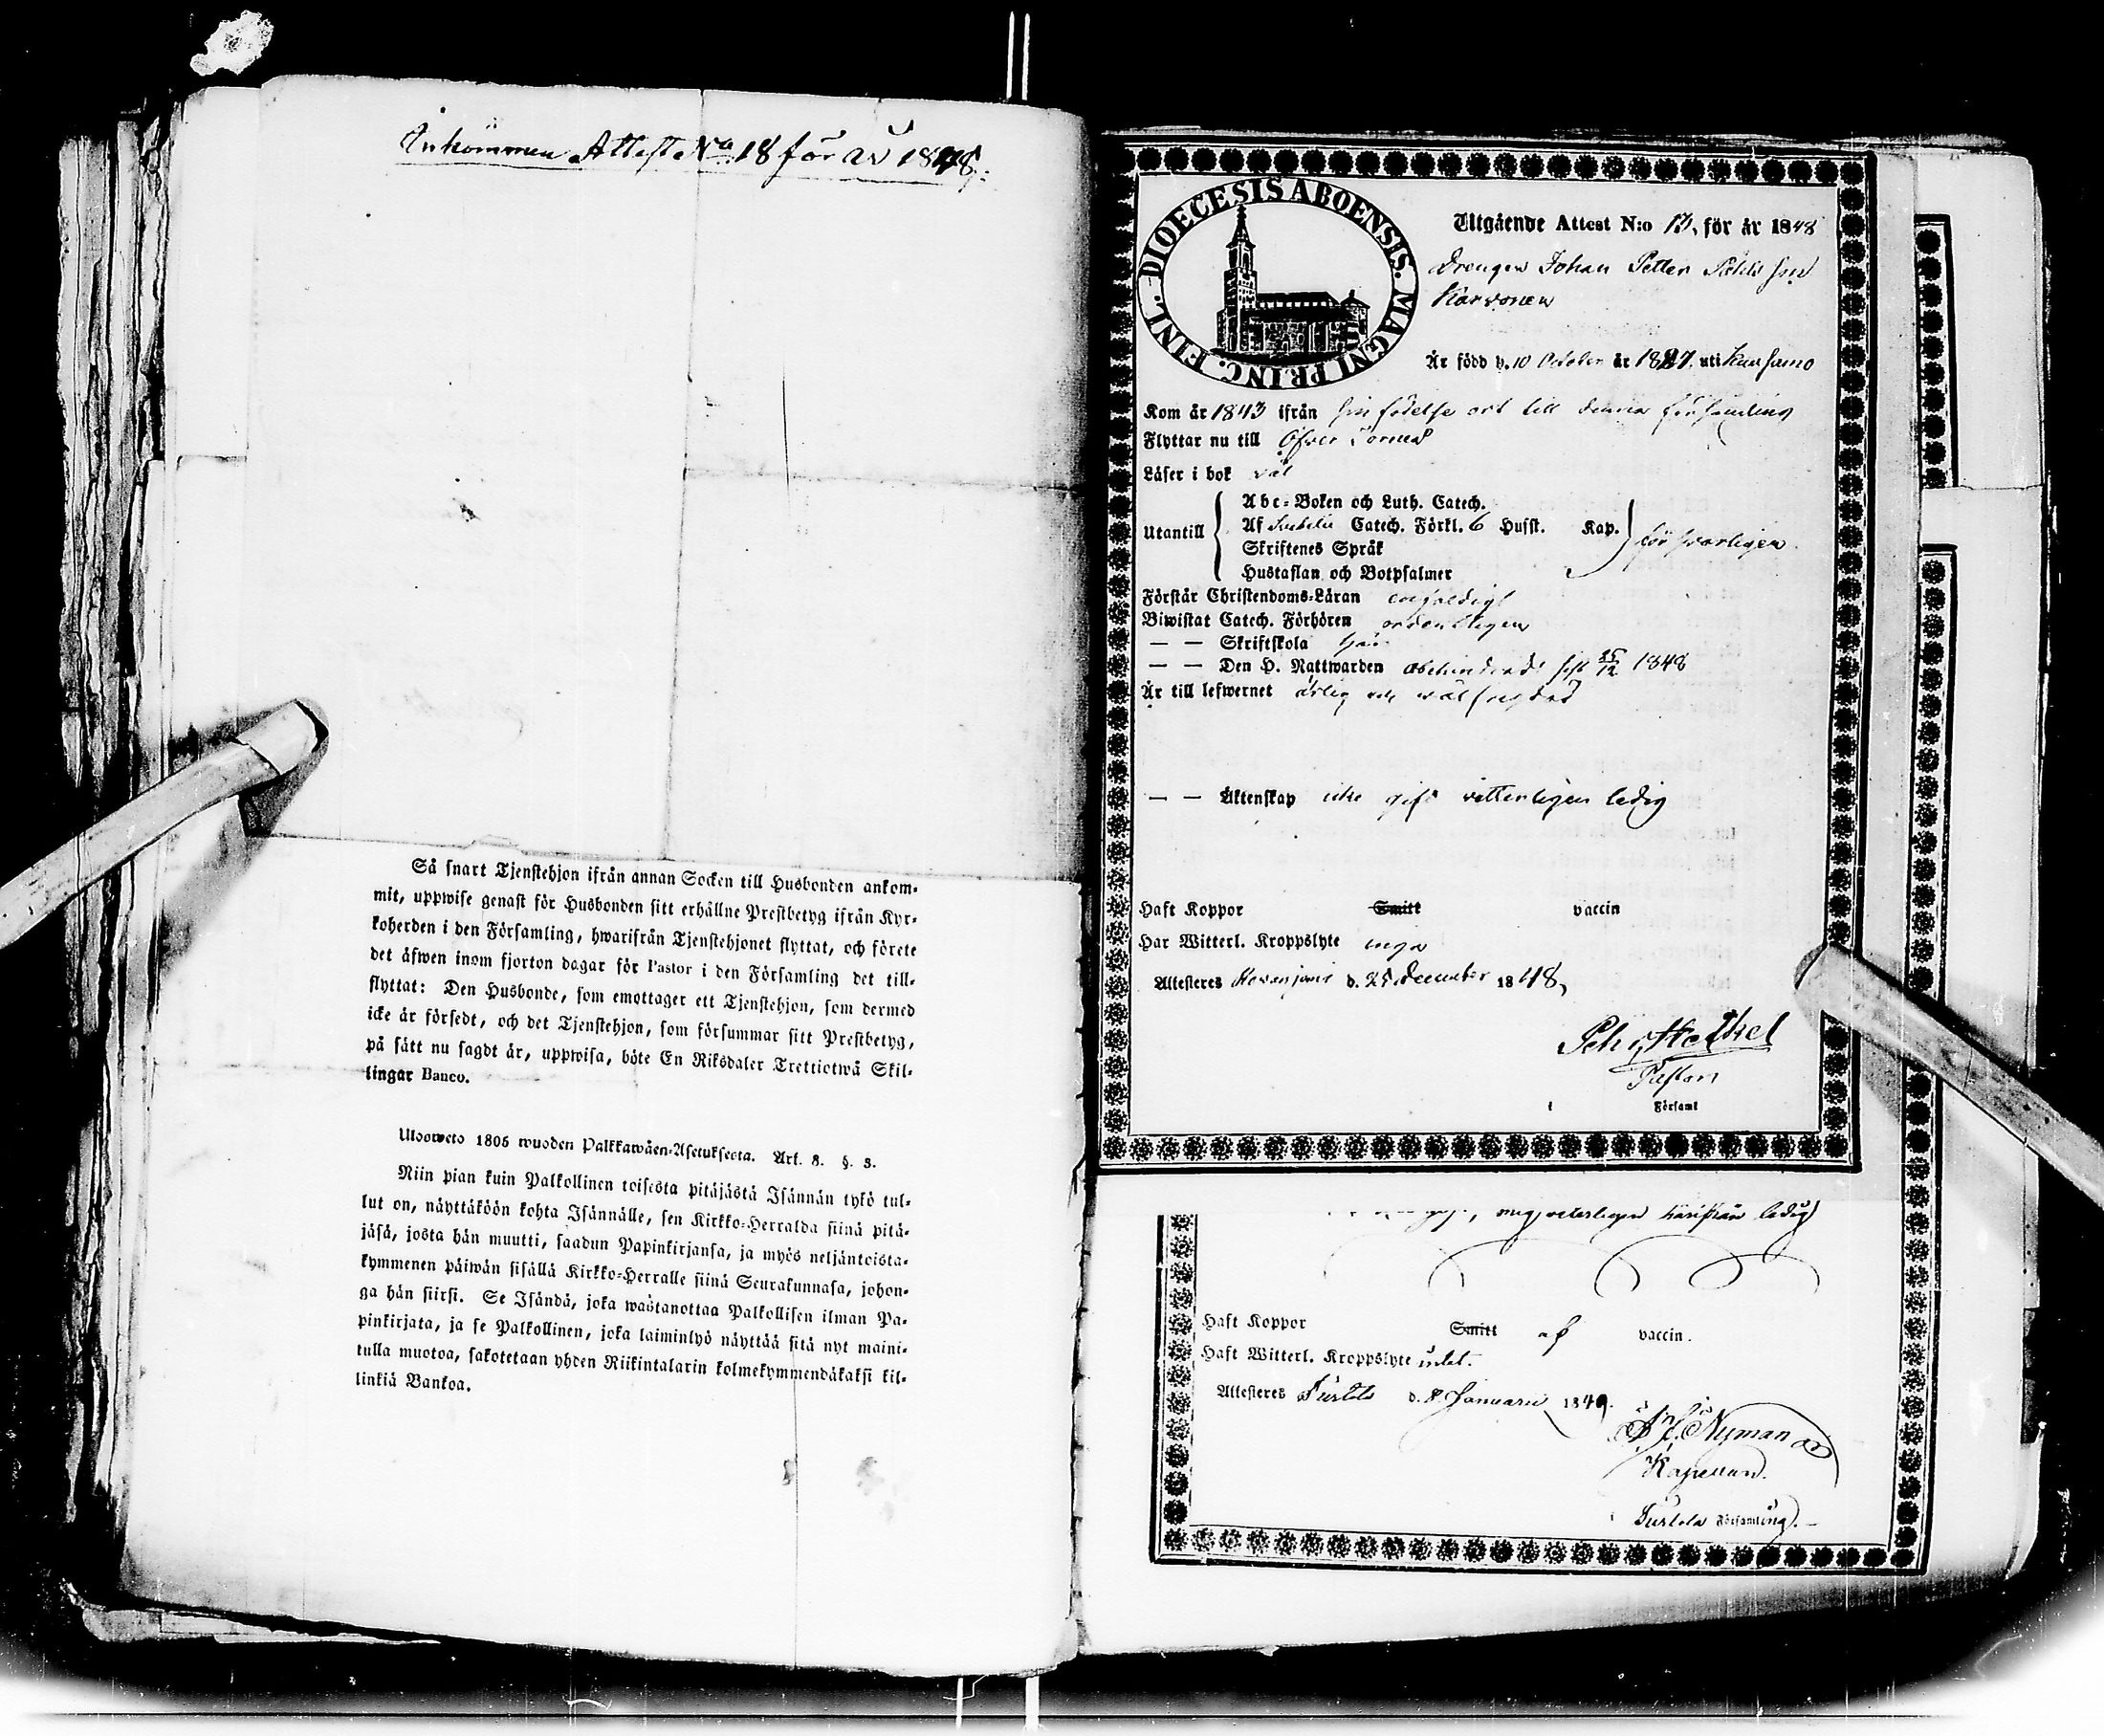 Inkommen Attest No 18 för år 1848.
Så snart Tjenstehjon ifrån annan Socken till Husbonden ankom-
mit, uppwise genast för Husbonden sitt erhållne Prestbetyg ifrån Kyr-
koherden i den Församling, hwarifrån Tjenstehjonet flyttat, och förete
det äfwen inom fjorton dagar för Pastor i den Församling det till-
flyttat: Den Husbonde, som emottager ett Tjenstehjon, som dermed
icke är försedt, och det Tjenstehjon, som försummar sitt Prestbetyg,
på sätt nu sagdt är, uppwisa, böte En Riksdaler Trettiotwå Skil-
lingar Banco.
Ulooweto 1805 wuoden Palkkawäen-Asetuksesta. Art. 8. §. 3.
Niin pian kuin Palkollinen toisesta pitäjästä Isännän tykö tul-
lut on, näyttäköön kohta Isännälle, sen Kirkko-Herralda siinä pitä-
jäsä, josta hän muutti, saadun Papinkirjansa, ja myös neljäntoista-
kymmenen päiwän sisällä Kirkko-Herralle siinä Seurakunnasa, johon-
ga hän siirsi. Se Isändä, joka wastanottaa Palkollisen ilman Pa-
pinkirjata, ja se Palkollinen, joka laiminlyö näyttää sitä nyt maini-
tulla muotoa, sakotetaan yhden Riikintalarin kolmekymmendäkaksi kil-
linkiä Bankoa.
DIOECESIS ABOENSIS. MAGNI PRINC. FINL.
Utgående Attest N:o 13, för år 1848
Drengen Johan Petter
Karvonen
Är född d. 10 October år 1827. uti Kuusamo
Kom år 1843 ifrån sin födelse ort till denna församling
Flyttar nu till Öfver Torneå
Läser i bok väl
Utantill
Abc-Boken och Luth. Catech.
Af Catech. Förkl. 6 Hufst. Kap.
Skriftenes Språk
Hustaflan och Botpsalmer
försvarligen
Förstår Christendoms-Läran enfaldigt
Biwistat Catech. Förhören ordentligen
— — Skriftskola här
— — Den H. Nattwarden obehindrad sist 25/12 1848
Är till lefwernet ärlig och välfrejdad
— — Äktenskap icke gift vitterligen ledig
Haft Koppor Smitt vaccin
Har Witterl. Kroppslyte inga
Attesteres d. 25 december 1848,
Heikel
Pastor
i Församl
ledig
Haft Koppor Smitt af vaccin.
Haft Witterl. Kroppslyte intet.
Attesteres Turtola d. 8 Januarii 1849.
Nyman
Kapellan.
i Turtola Församling.